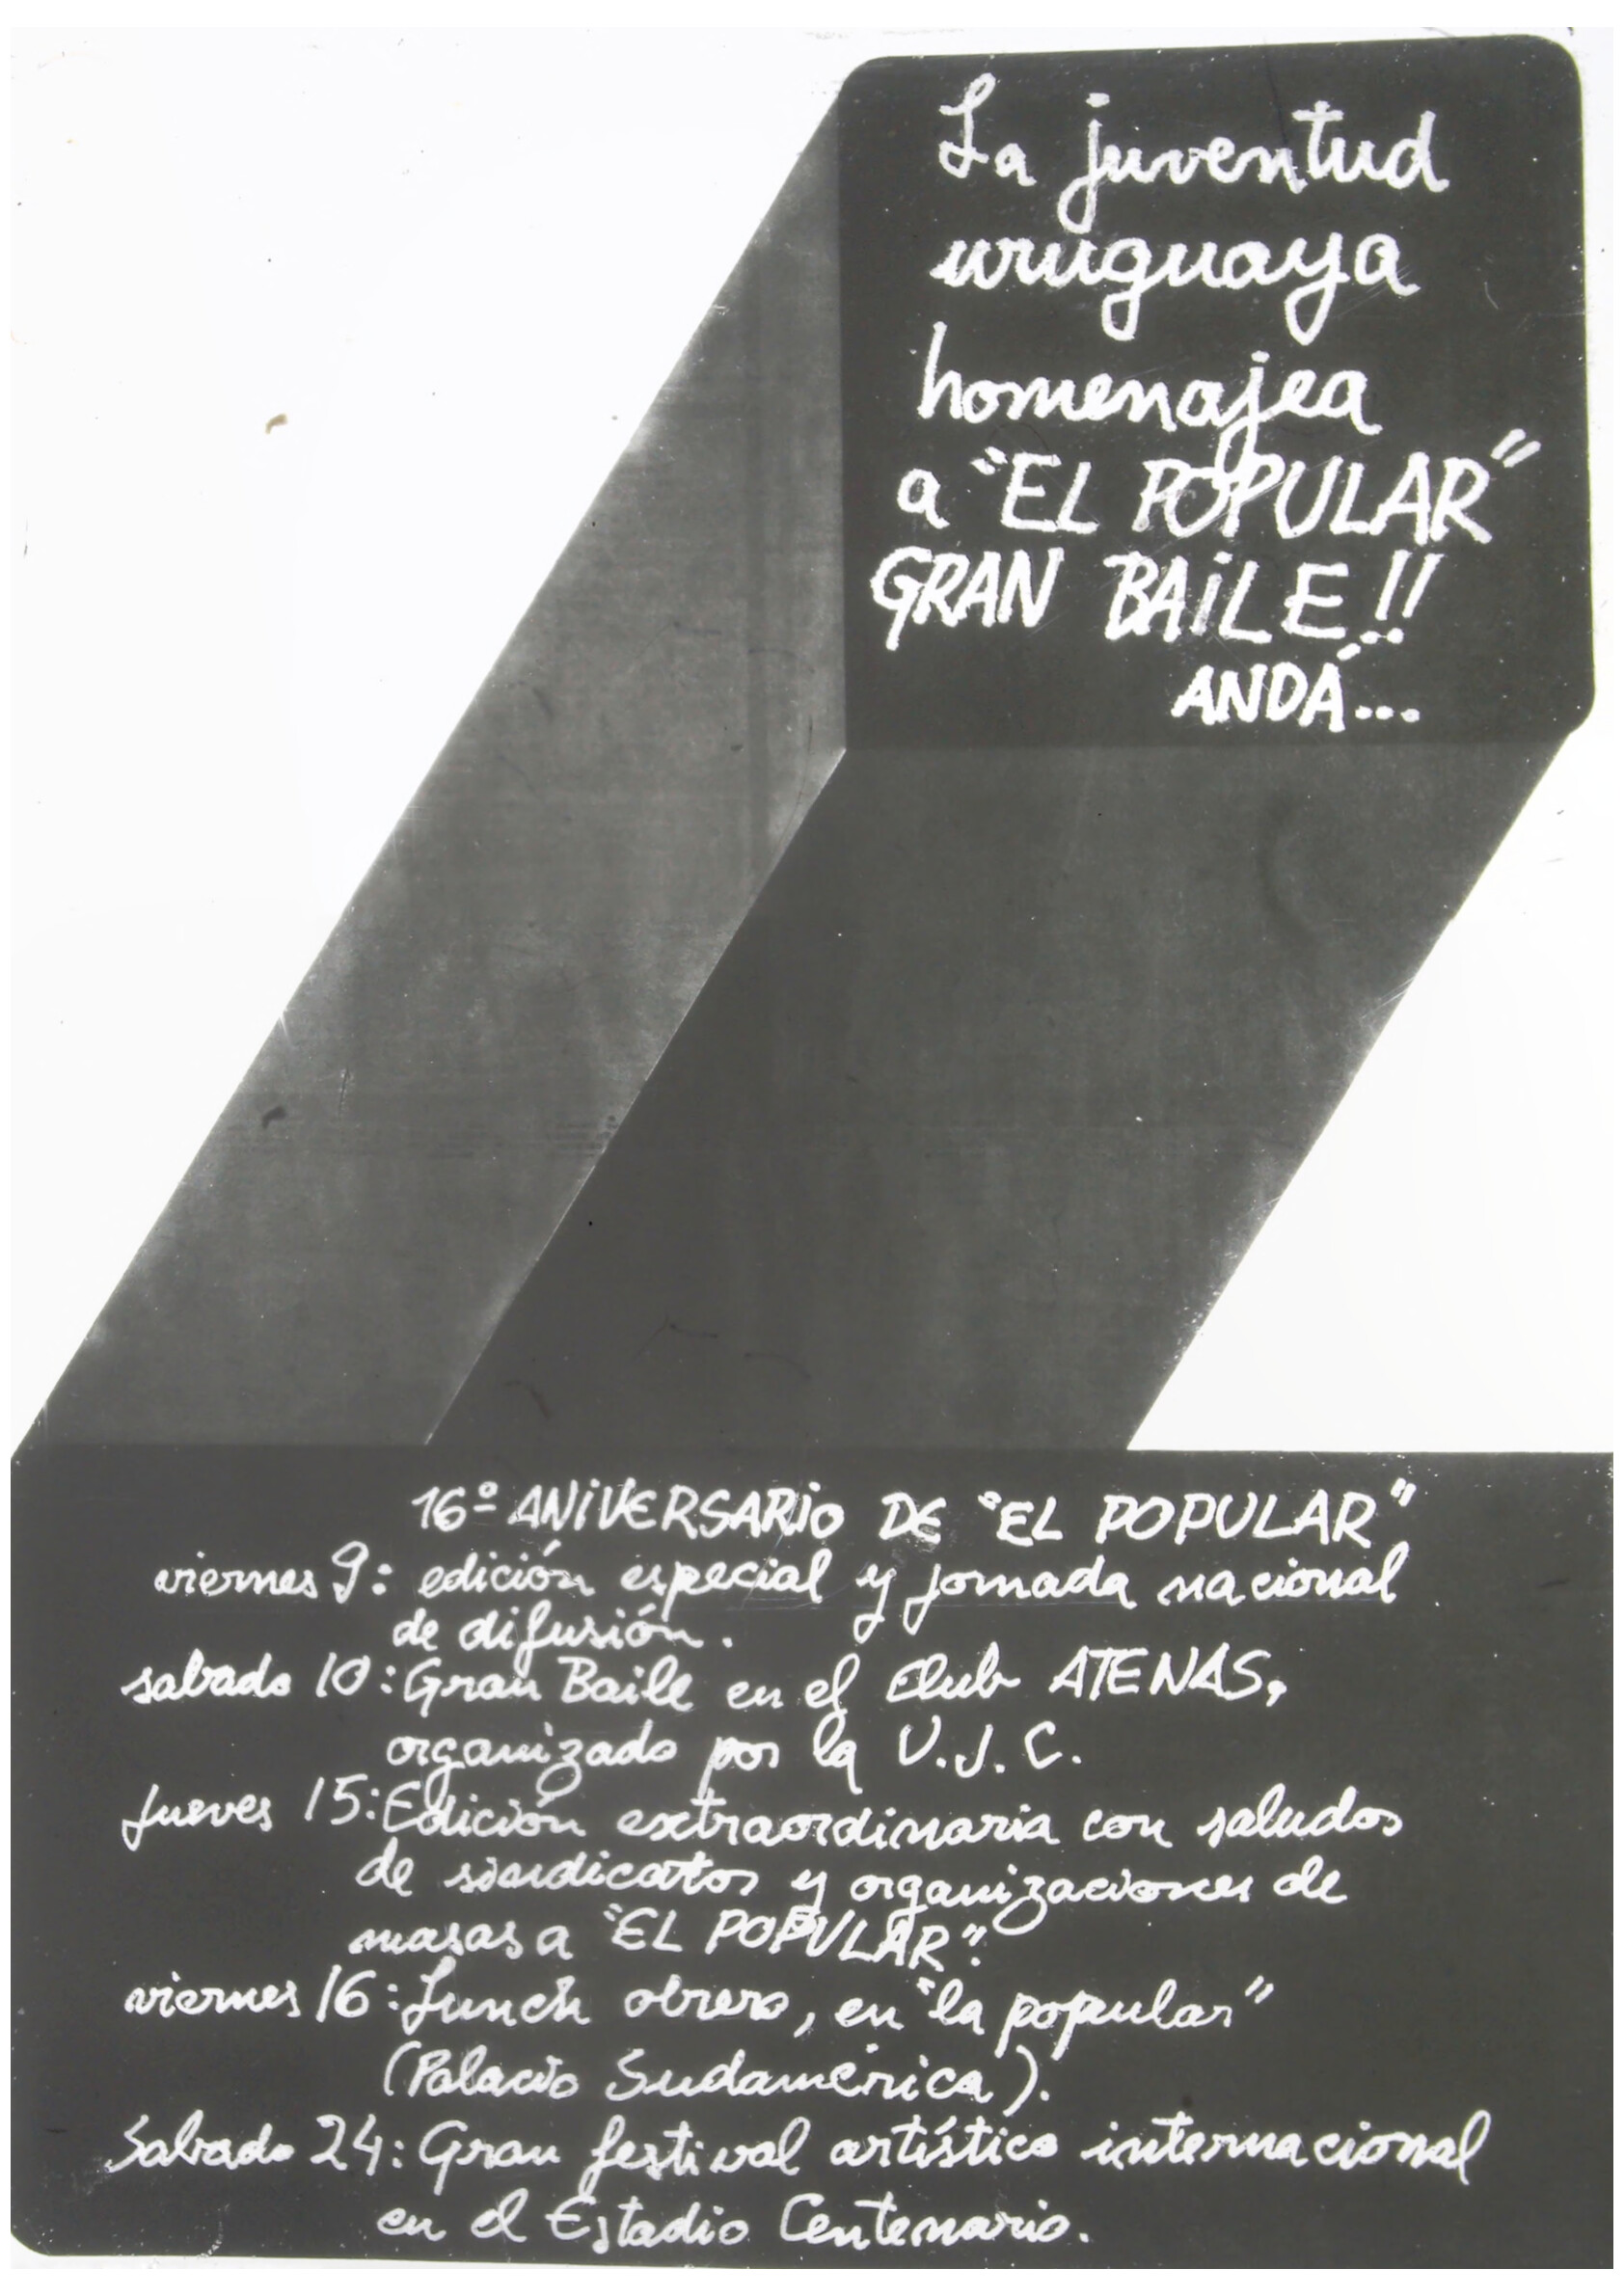 La juventud
uruguaya
homenajea
a "EL POPULAR"
GRAN BAILE!!
ANDÁ...
16º ANIVERSARIO DE "EL POPULAR"
viernes 9: edición especial y jornada nacional
de difusión.
sabado 10: Gran Baile en el Club ATENAS,
organizado por la U.J.C.
Jueves 15: Edición extraordinaria con saludos
de sindicatos y organizaciones de
masas a "EL POPULAR".
viernes 16: Lunch obrero, en "la popular"
(Palacio Sudamérica).
Sabado 24: Gran festival artístico internacional
en el Estadio Centenario.